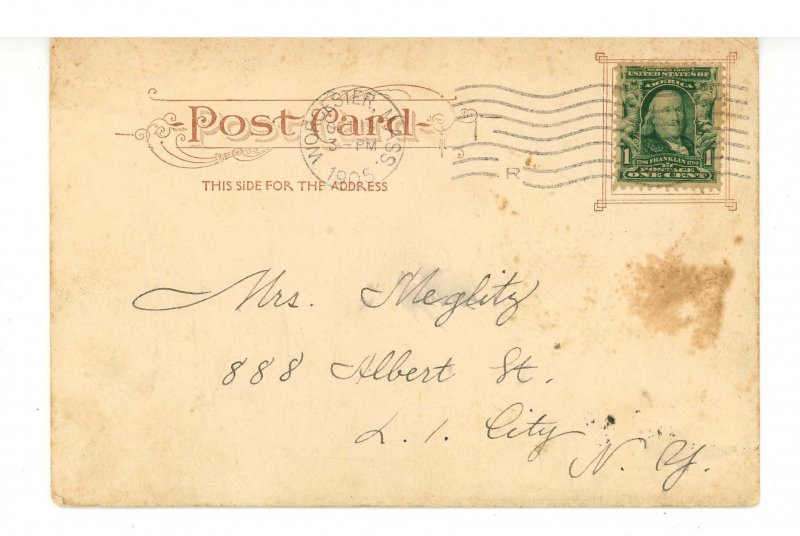 Post Card
THIS SIDE FOR THE ADDRESS
WORCESTER, MASS.
3-PM
1905
R
SERIES 1902
UNITED STATES OF
AMERICA
1 FRANKLIN 1
POSTAGE
ONE CENT
Mrs. Meglitz
888 Albert St.
L. I. City
N. Y.